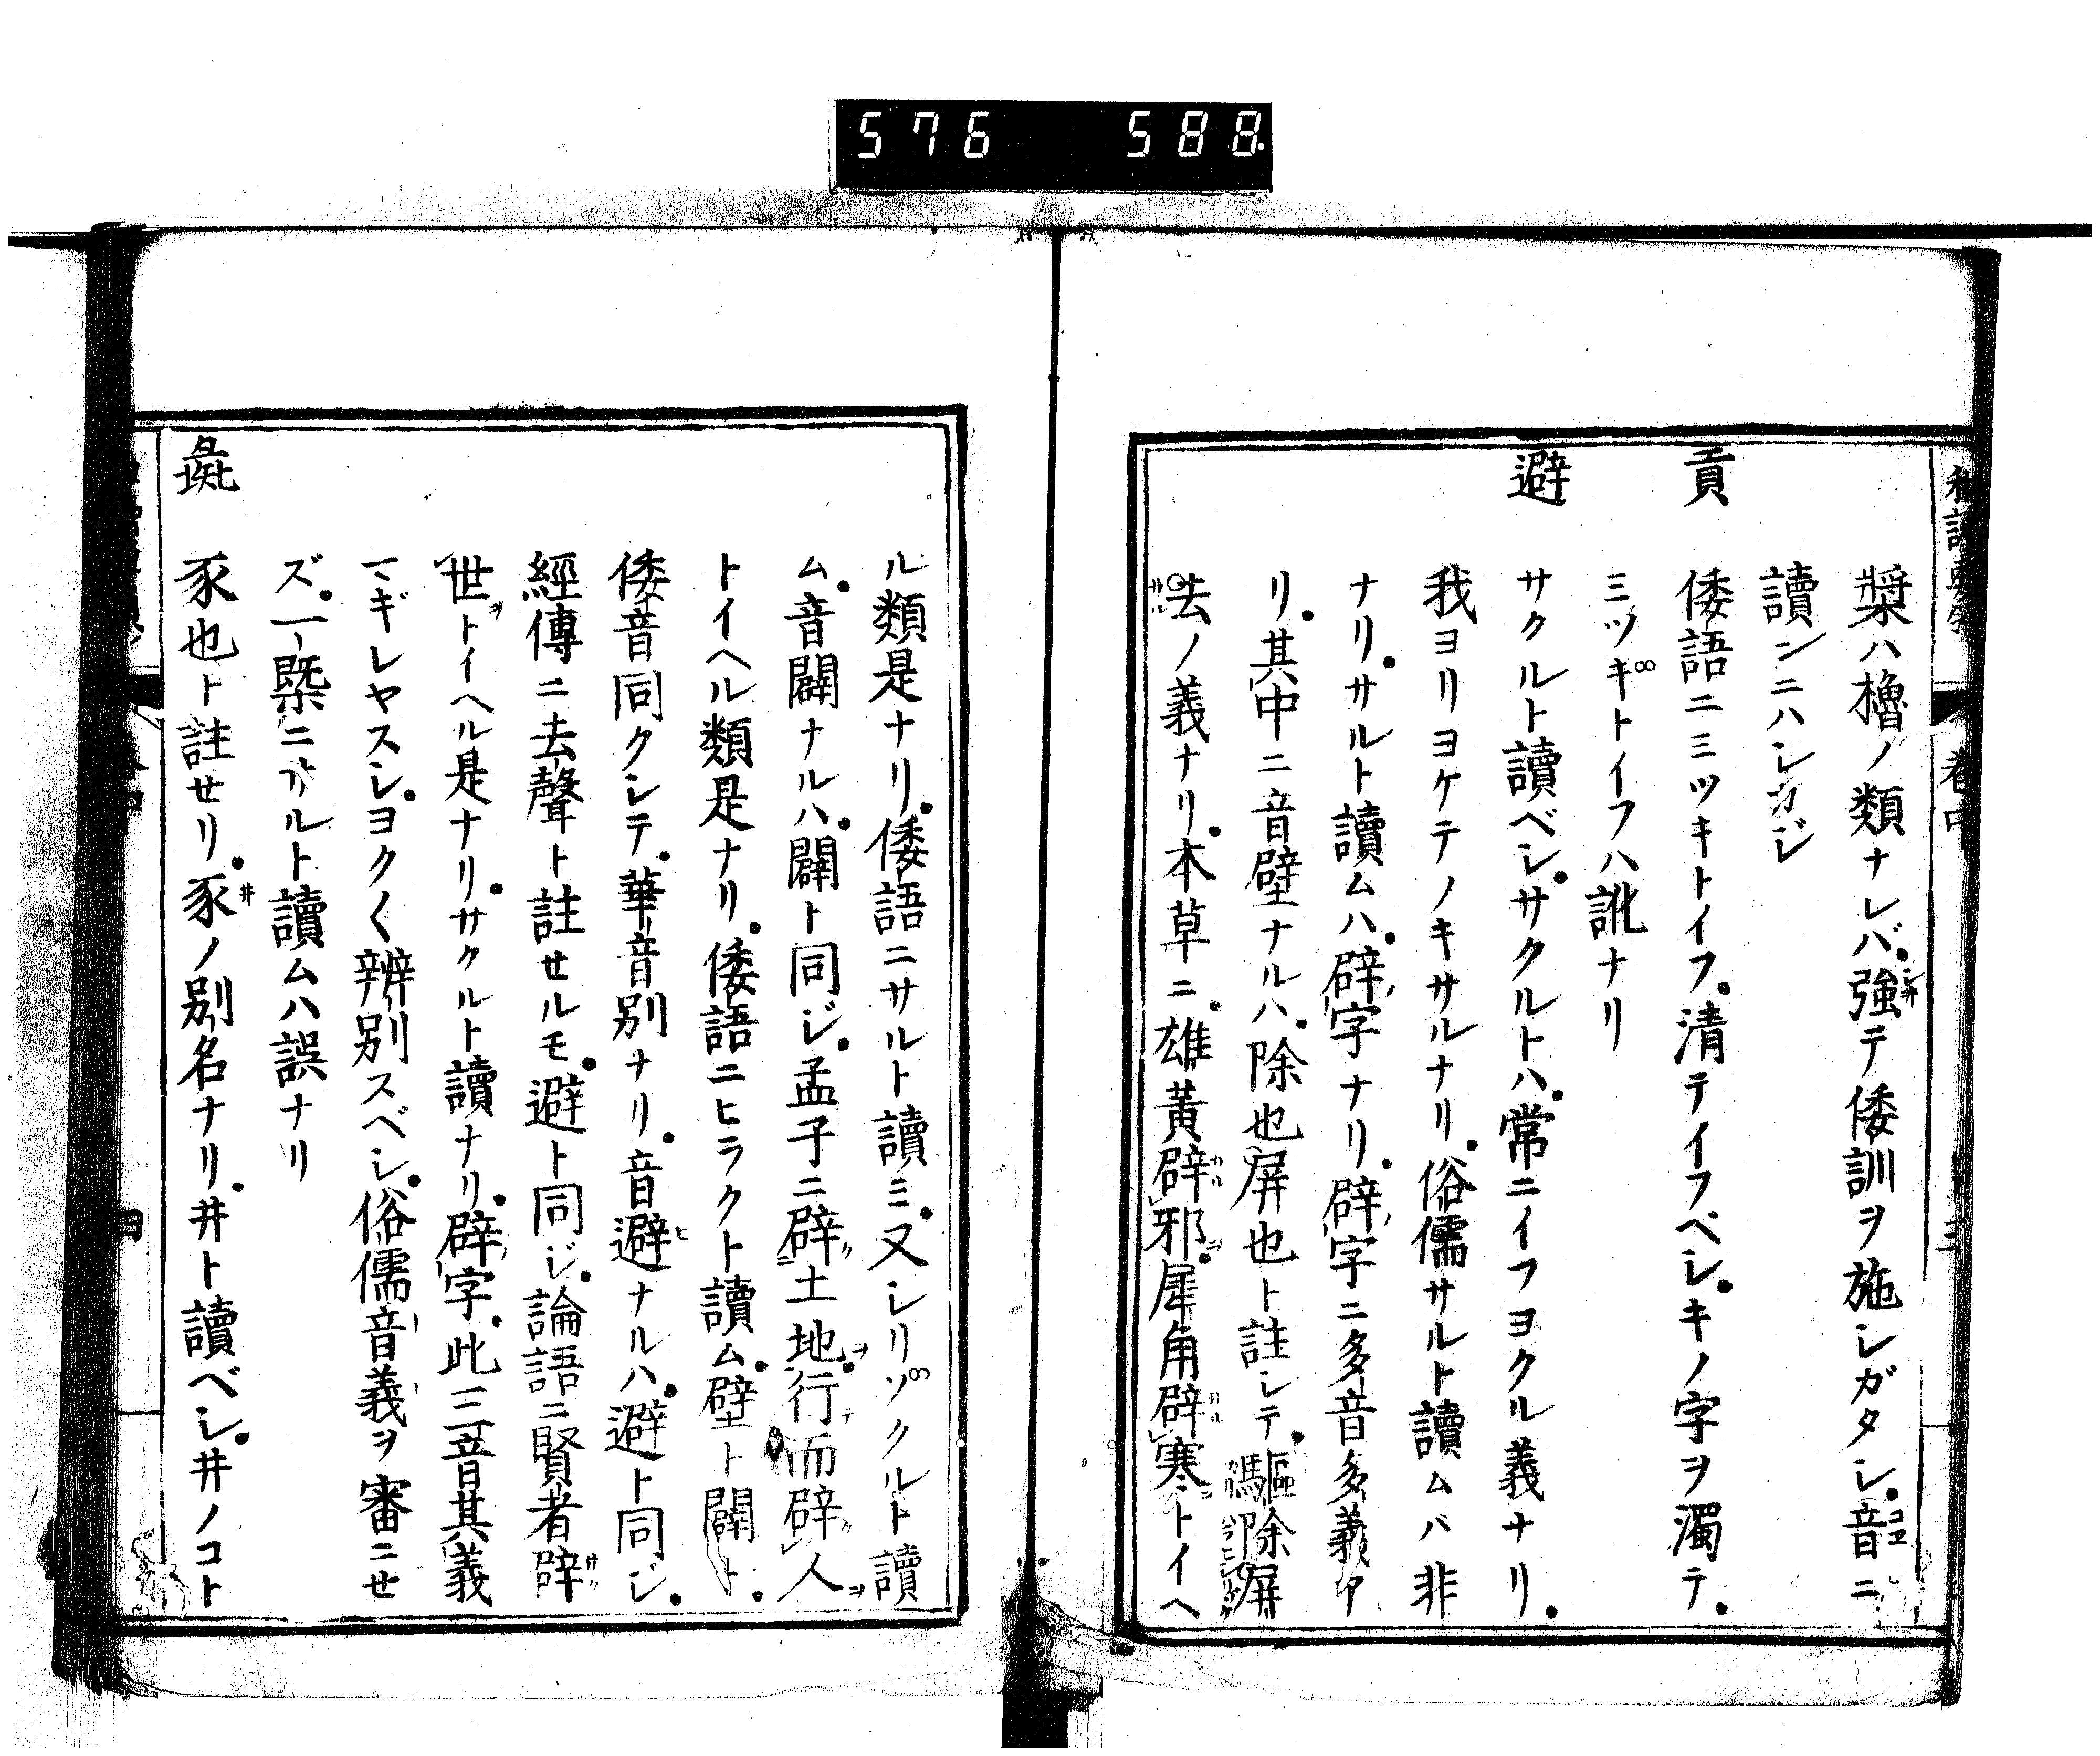 576 588
槳ハ櫓ノ類ナレバ強テ倭訓ヲ施シガタシ音ニ
讀ンニハシカジ
貢 倭語ニミツキトイフ清テイフベシキノ字ヲ濁テ
ミヅギトイフハ訛ナリ
避 サクルト讀ベシサクルトハ常ニイフヨクル義ナリ
我ヨリヨケテノキサルナリ俗儒サルト讀ムバ非
ナリサルト讀ムハ辟字ナリ辟字ニ多音多義ア
リ其中ニ音壁ナルハ除也屏也ト註シテ驅除屏
去ノ義ナリ本草ニ雄黃辟邪犀角辟寒トイヘ
ル類是ナリ倭語ニサルト讀ミ又シリゾクルト讀
ム音闢ナルハ闢ト同ジ孟子ニ辟土地行而辟人
トイヘル類是ナリ倭語ニヒラクト讀ム壁ト闢ト
倭音同クシテ華音別ナリ音避ナルハ避ト同ジ
經傳ニ去聲ト註セルモ避ト同ジ論語ニ賢者辟
世トイヘル是ナリサクルト讀ナリ辟字此三音其義
マギレヤスシヨクく辨別スベシ俗儒音義ヲ審ニセ
ズ一槩ニサルト讀ムハ誤ナリ
彘 豕也ト註セリ豕ノ別名ナリ井ト讀ベシ井ノコト
卷中
四